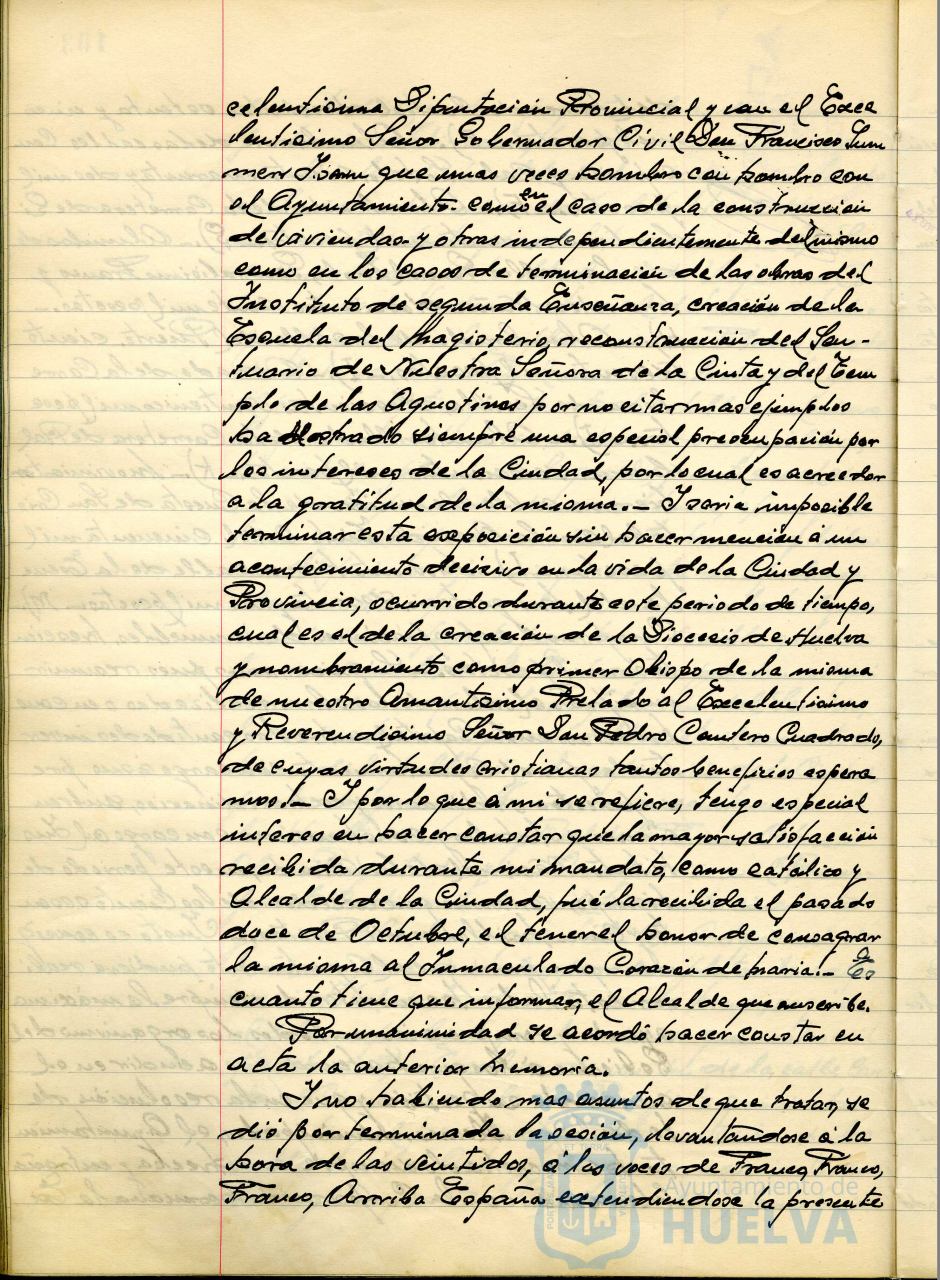 celentisima Diputación Provincial y con el Exce
lentisimo Señor Gobernador Civil Don Francisco Sum
mers Isern que unas veces hombro con hombro con
el Ayuntamiento- como en el caso de la construcción
de viviendas- y otras independientemente del mismo
como en los casos de terminación de las obras del
Instituto de segunda Enseñanza, creación de la
Escuela del Magisterio, reconstrucción del San-
tuario de Nuestra Señora de la Cinta y del Tem
plo de las Agustinas por no citar mas ejemplos
ha mostrado siempre una especial preocupación por
los intereses de la Ciudad, por lo cual es acreedor
a la gratitud de la misma.- I seria imposible
terminar esta exposición sin hacer mención a un
acontecimiento decisivo en la vida de la Ciudad y
Provincia, ocurrido durante este periodo de tiempo,
cual es el de la creación de la Diocesis de Huelva
y nombramiento como primer Obispo de la misma
de nuestro Amantisimo Prelado al Excelentisimo
y Reverendisimo Señor Don Pedro Cantero Cuadrado,
de cuyas virtudes cristianas tantos beneficios espera
mos.- I por lo que a mi se refiere, tengo especial
interes en hacer constar que la mayor satisfacción
recibida durante mi mandato, como católico y
Alcalde de la Ciudad, fué la recibida el pasado
doce de Octubre, el tener el honor de consagrar
la misma al Inmaculado Corazón de Maria.- Es
cuanto tiene que informar, el Alcalde que suscribe.
Por unanimidad se acordó hacer constar en
acta la anterior Memoria.
I no habiendo mas asuntos de que tratar, se
dió por terminada la sesión, levantandose a la
hora de las veintidos, a las voces de Franco, Franco,
Franco, Arriba España extendiendose la presente
Ayuntamiento de
HUELVA